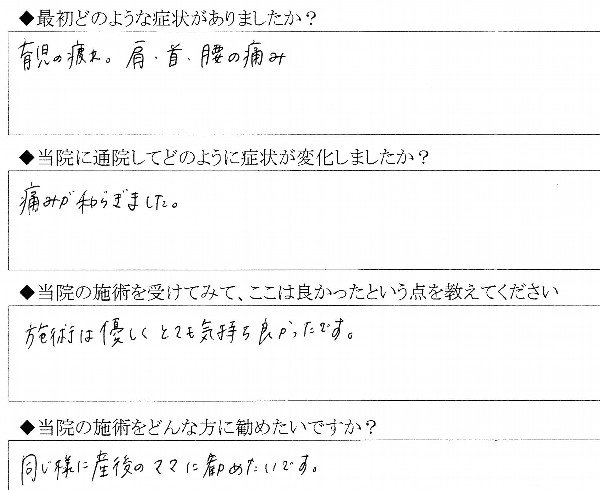 ◆最初どのような症状がありましたか？
育児の疲れ。肩・首・腰の痛み
◆当院に通院してどのように症状が変化しましたか？
痛みが和らぎました。
◆当院の施術を受けてみて、ここは良かったという点を教えてください
施術は優しくとても気持ち良かったです。
◆当院の施術をどんな方に勧めたいですか？
同じ様に産後のママに勧めたいです。